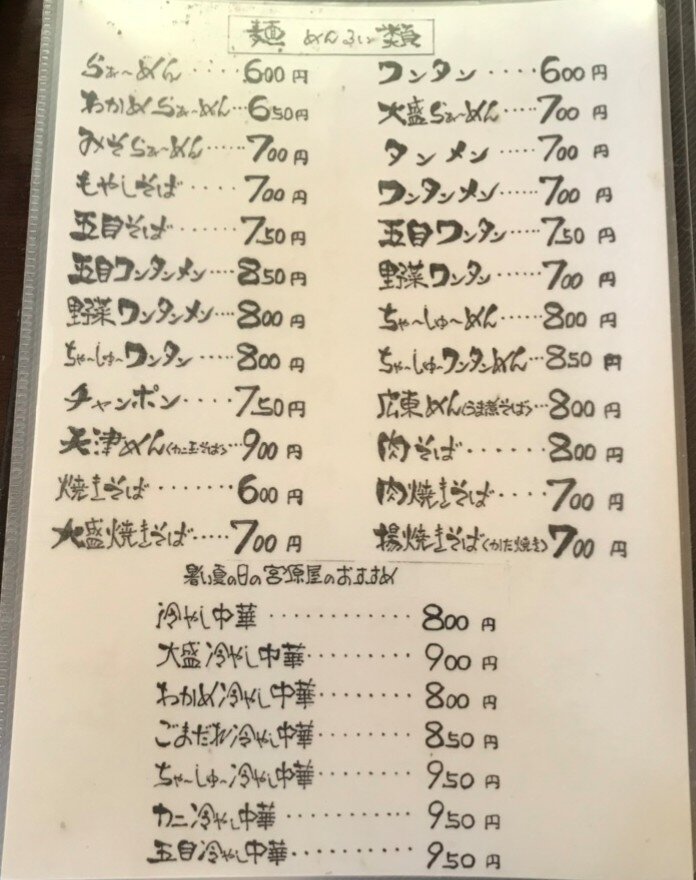 麺 めんるい 類
らぁ〜めん・・・・600円
わかめらぁ〜めん・・・650円
みそらぁ〜めん・・・・・700円
もやしそば・・・・・700円
五目そば・・・・・750円
五目ワンタンメン・・・・850円
野菜ワンタンメン・・・・800円
ちゃ〜しゅ〜ワンタン・・・・・800円
チャンポン・・・・・750円
天津めん(カニ玉そば)・・・900円
焼きそば・・・・・・・600円
大盛焼きそば・・・・・700円
ワンタン・・・・600円
大盛らぁ〜めん・・・・700円
タンメン・・・・・700円
ワンタンメン・・・・・700円
五目ワンタン・・・・・750円
野菜ワンタン・・・・・700円
ちゃ〜しゅ〜めん・・・・・・800円
ちゃ〜しゅ〜ワンタンめん・・・850円
広東めん(うま煮そば)・・・800円
肉そば・・・・・・・800円
肉焼きそば・・・・・・700円
揚焼きそば(かた焼き)700円
暑い夏の日の宮源屋のおすすめ
冷やし中華・・・・・・・・・・・・800円
大盛冷やし中華・・・・・・・・・900円
わかめ冷やし中華・・・・・・・・800円
ごまだれ冷やし中華・・・・・・・・850円
ちゃ〜しゅ〜冷やし中華・・・・・・・・950円
カニ冷やし中華・・・・・・・・・・・950円
五目冷やし中華・・・・・・・・・・950円